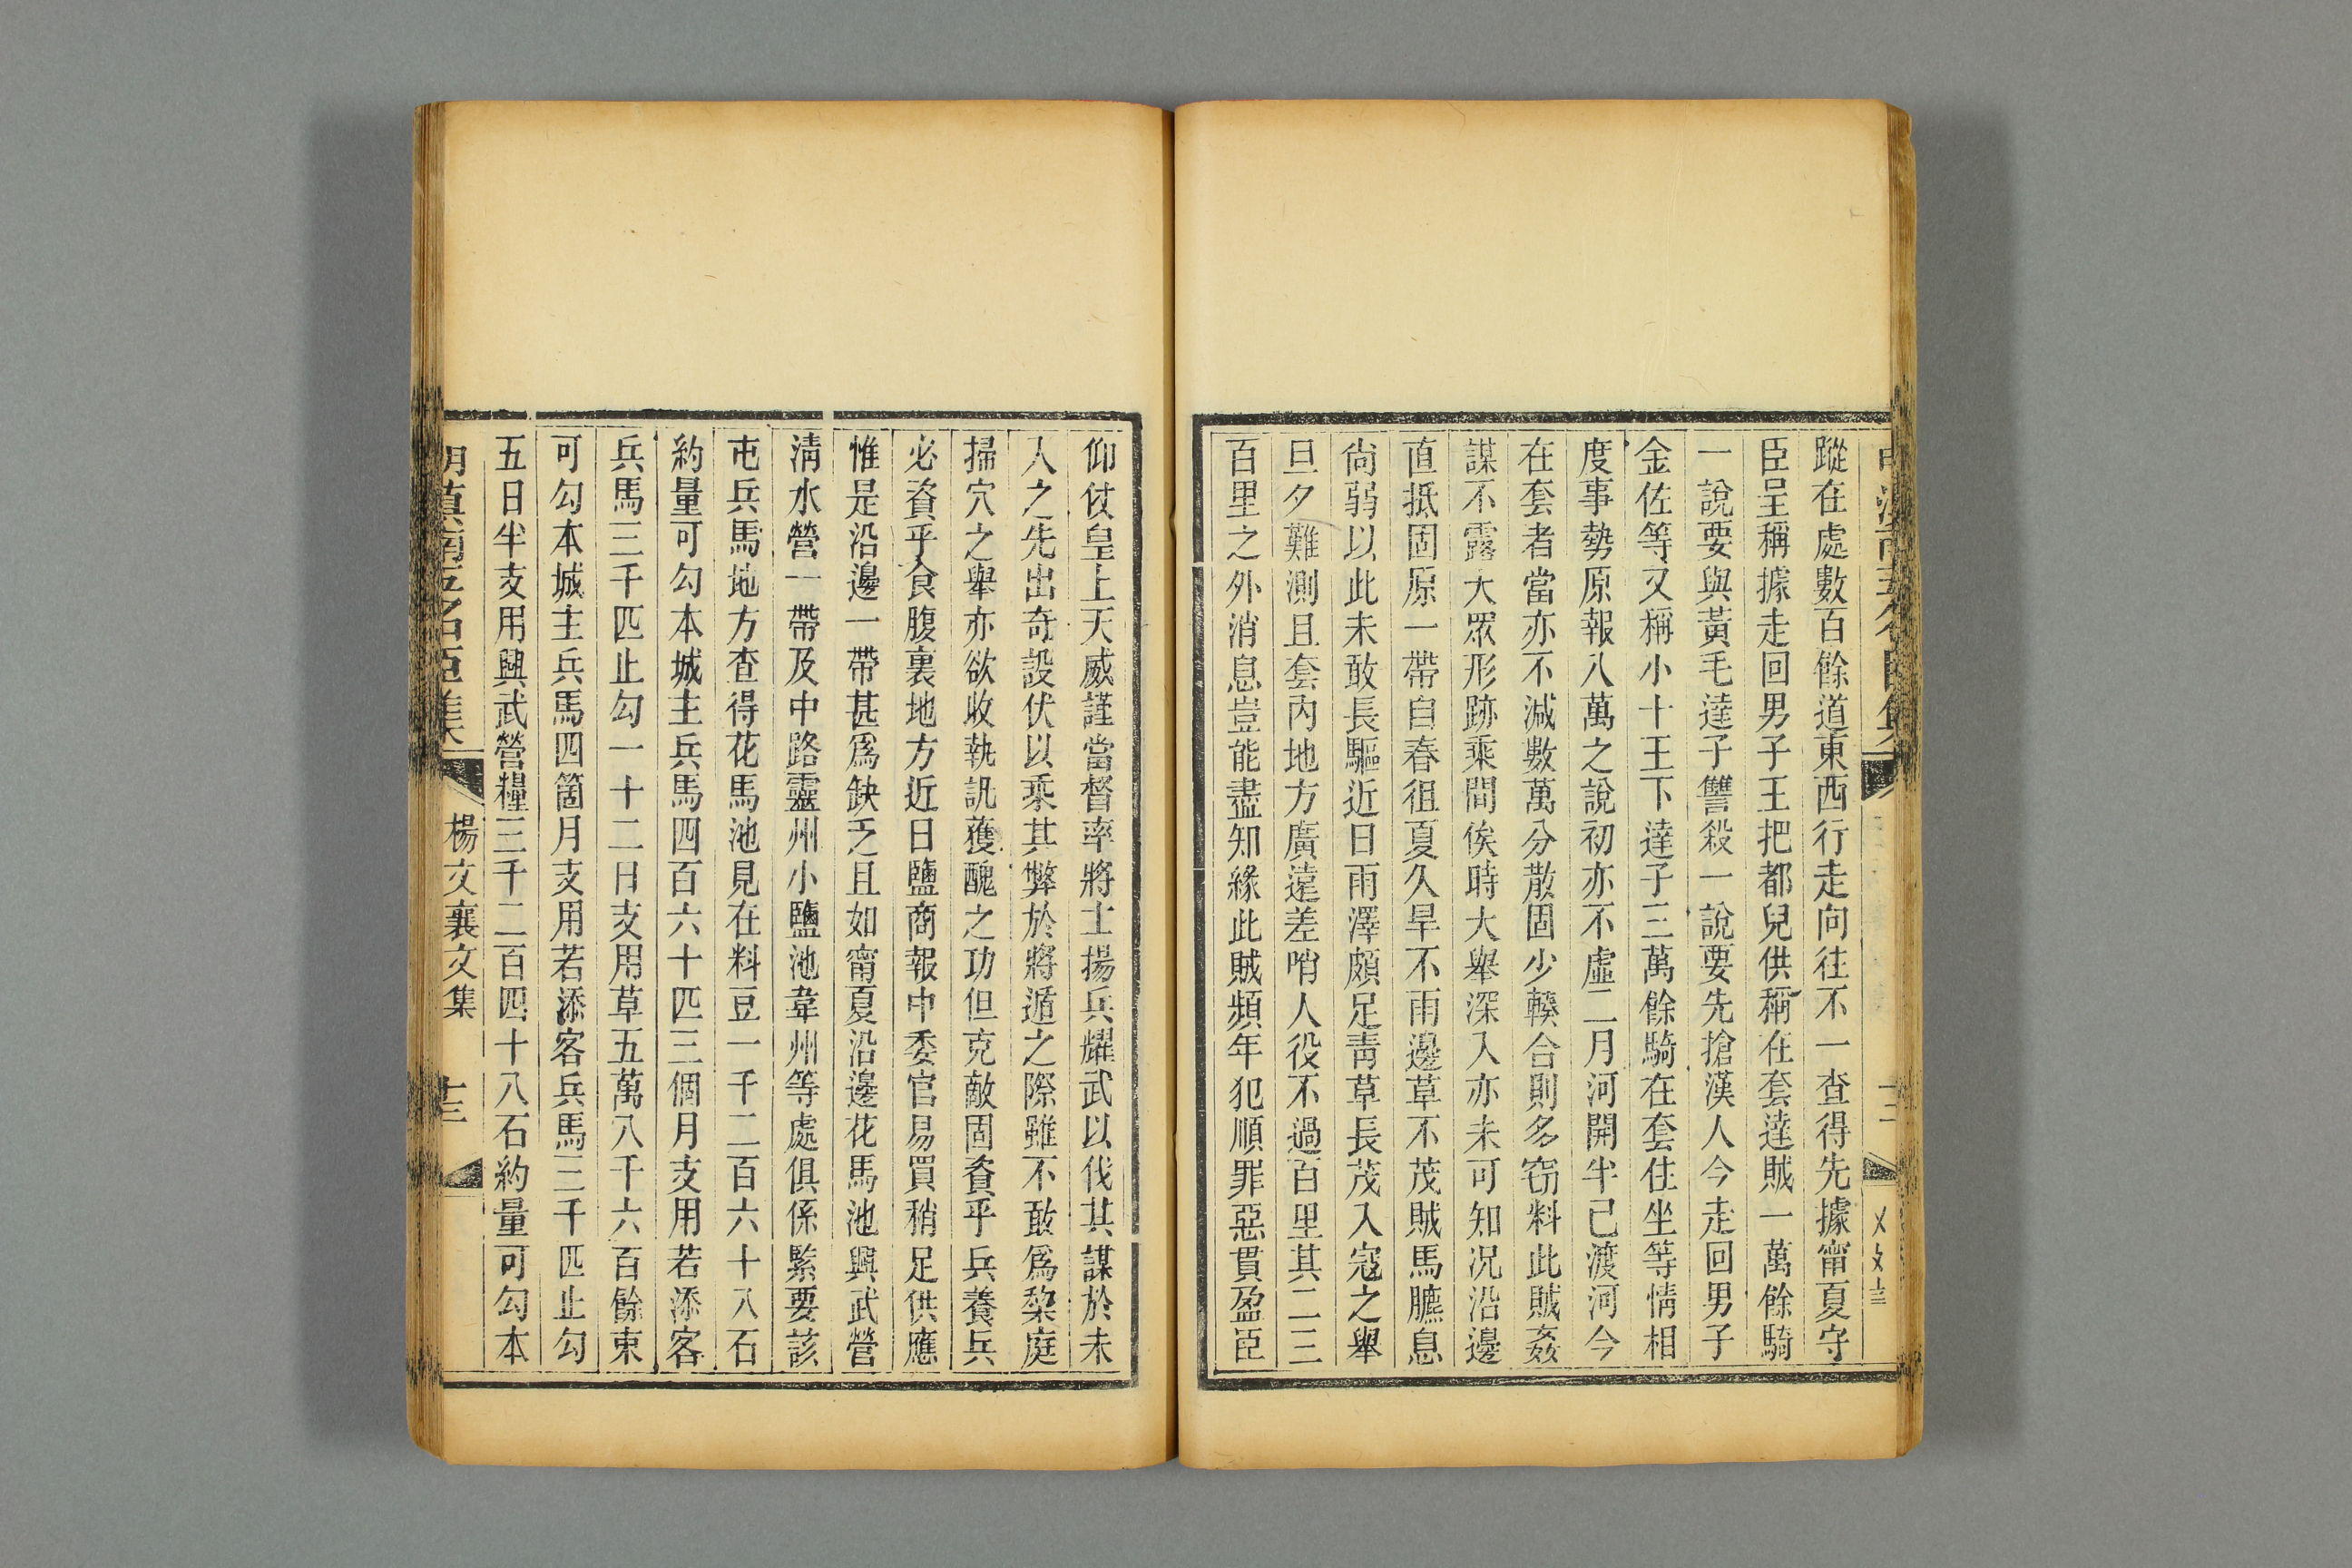 蹤在處數百餘道東西行走向往不一查得先據甯夏守
臣呈稱據走回男子王把都兒供稱在套達賊一萬餘騎
一說要與黃毛達子讐殺一說要先搶漢人今走回男子
金佐等又稱小十王下達子三萬餘騎在套住坐等情相
度事勢原報八萬之說初亦不虛二月河開半已渡河今
在套者當亦不減數萬分散固少輳合則多竊料此賊姦
謀不露大眾形跡乘間俟時大舉深入亦未可知況沿邊
直抵固原一帶自春徂夏久旱不雨邊草不茂賊馬臕息
尙弱以此未敢長驅近日雨澤頗足青草長茂入寇之舉
旦夕難測且套內地方廣遠差哨人役不過百里其二三
百里之外消息豈能盡知緣此賊頻年犯順罪惡貫盈臣
仰仗皇上天威謹當督率將士揚兵耀武以伐其謀於未
入之先出奇設伏以乘其弊於將遁之際雖不敢爲犂庭
掃穴之舉亦欲收執訊獲醜之功但克敵固資乎兵養兵
必資乎食腹裏地方近日鹽商報中委官易買稍足供應
惟是沿邊一帶甚爲缺乏且如甯夏沿邊花馬池興武營
淸水營一帶及中路靈州小鹽池韋州等處俱係緊要該
屯兵馬地方查得花馬池見在料豆一千二百六十八石
約量可勾本城主兵馬四百六十匹三個月支用若添客
兵馬三千匹止勾一十二日支用草五萬八千六百餘束
可勾本城主兵馬四箇月支用若添客兵馬三千匹止勾
五日半支用興武營糧三千二百四十八石約量可勾本
明滇南五名臣集 楊文襄文集 十三